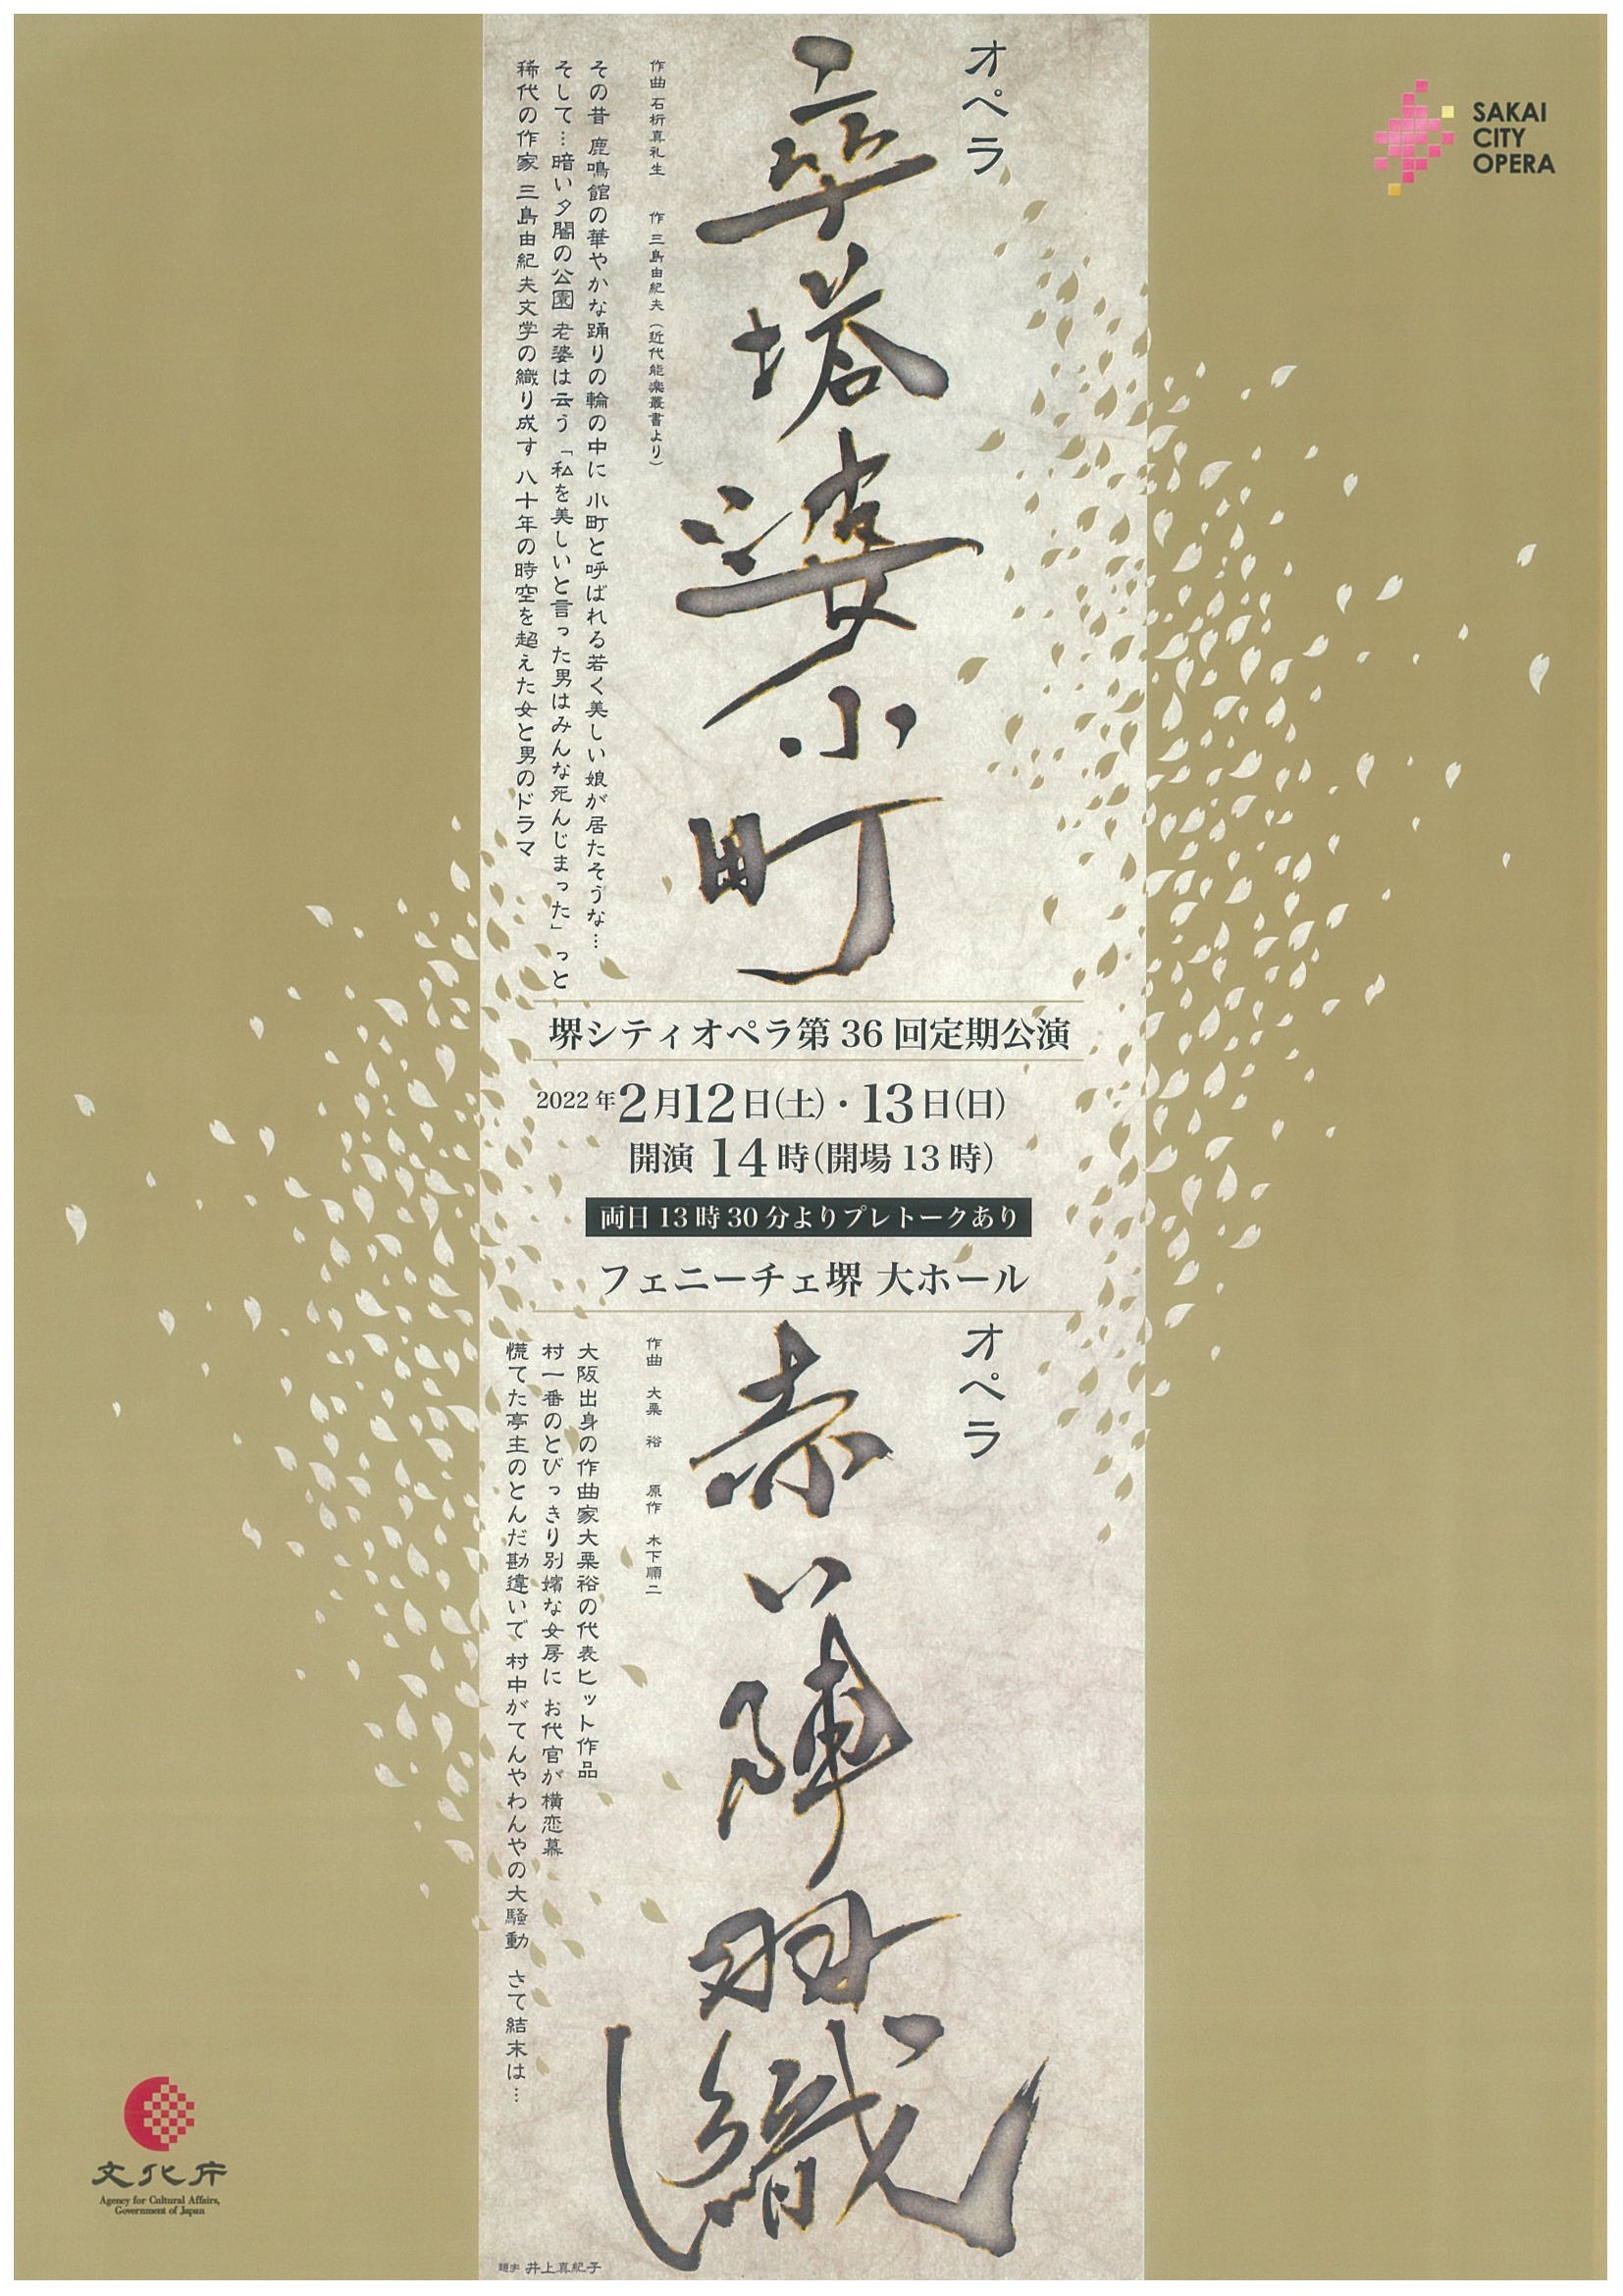 SAKAI
CITY
OPERA
オペラ
卒塔婆小町
作曲 石桁真礼生 作 三島由紀夫（近代能楽叢書より）
その昔 鹿鳴館の華やかな踊りの輪の中に 小町と呼ばれる若く美しい娘が居たそうな…
そして…暗い夕闇の公園 老婆は云う「私を美しいと言った男はみんな死んじまった」っと
稀代の作家 三島由紀夫文学の織り成す 八十年の時空を超えた女と男のドラマ
堺シティオペラ第36回定期公演
2022年2月12日(土)・13日(日)
開演 14時(開場 13時)
両日 13時30分よりプレトークあり
フェニーチェ堺 大ホール
オペラ
赤い陣羽織
作曲 大栗 裕 原作 木下順二
大阪出身の作曲家大栗裕の代表ヒット作品
村一番のとびっきり別嬪な女房に お代官が横恋慕
慌てた亭主のとんだ勘違いで 村中がてんやわんやの大騒動 さて結末は…
題字 井上真紀子
文化庁
Agency for Cultural Affairs,
Government of Japan